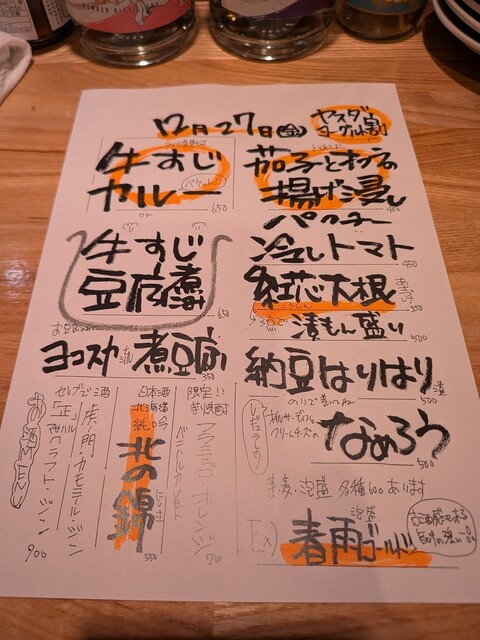 12月27日(金)
ヤスダ
ヨーグルト割
牛すじ
カレー
650
or
牛すじ
豆腐煮込み
650
ヨコスカ 煮豆腐
350
茄子とオクラの
揚げ浸し
パクチー
冷しトマト
450
紅芯大根
350
漬もん盛り
500
納豆はりはり漬
500
のりで巻いてね
オイルサーディンと
クリームチーズの
なめろう
500
芋、麦、泡盛 各種600あります
Ex)
泡盛
春雨ゴールド
限定!!
芋焼酎
フラミンゴ オレンジ
700
日本酒
北海道
北の錦
550
虎ノ門・カモミール・ジン
クラフト・ジン
900
お酒MENU